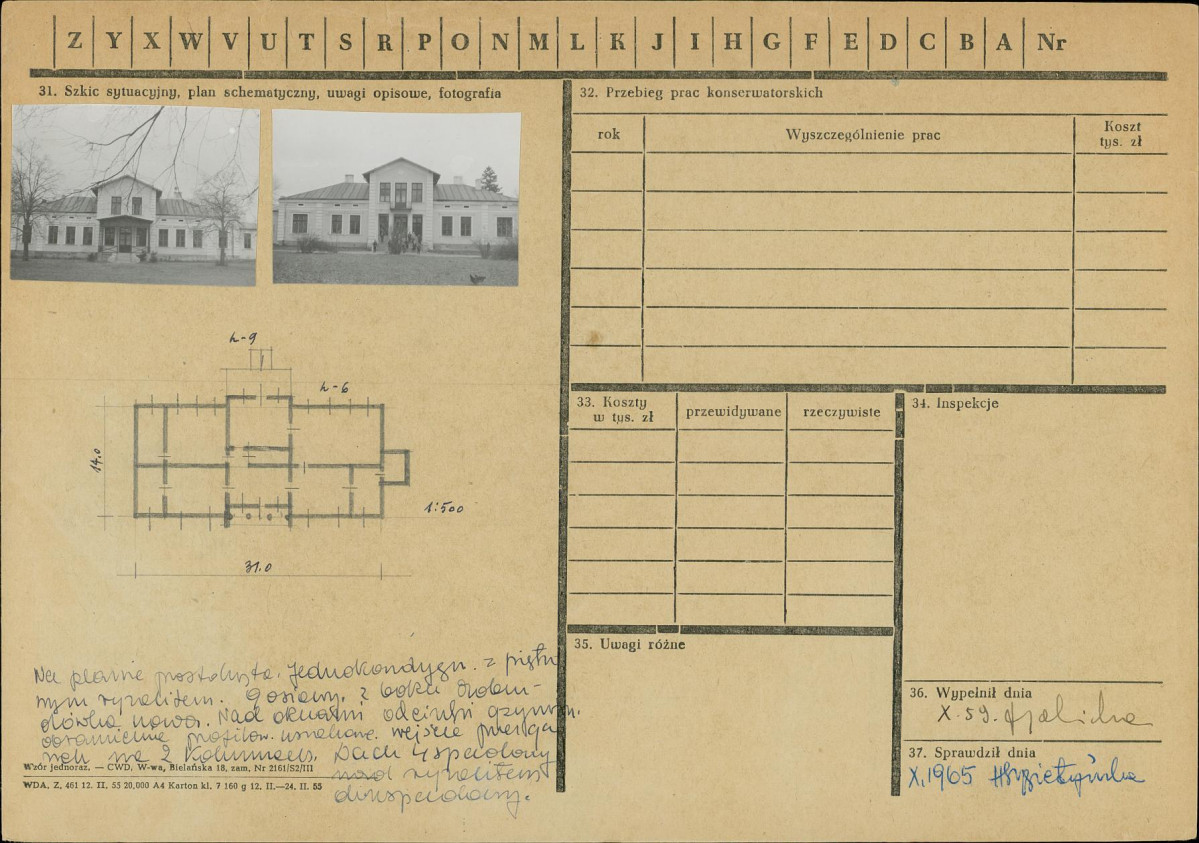 Z Y X W V U T S R P O N M L K J I H G F E D C B A Nr
31. Szkic sytuacyjny, plan schematyczny, uwagi opisowe, fotografia
h-9
h-6
14.0
1:500
31.0
Na planie prostokąta. Jednokondygn. z piętro
wym ryzalitem. 9 osiowy. Z boku dobu-
dówka nowa. Nad oknami odcinki gzymsu,
obramienie profilow. uszakowe. Wejście
na 2 kolumnach. Dach 4 spadowy
nad ryzalitem
dwuspadowy.
Wzór jednoraz. — CWD, W-wa, Bielańska 18, zam. Nr 2161/S2/III
WDA. Z, 461 12. II. 55 20,000 A4 Karton kl. 7 160 g 12. II.—24. II. 55
32. Przebieg prac konserwatorskich
rok
Wyszczególnienie prac
Koszt
tys. zł
33. Koszty
w tys. zł
przewidywane
rzeczywiste
34. Inspekcje
35. Uwagi różne
36. Wypełnił dnia
X. 59.
37. Sprawdził dnia
X. 1965